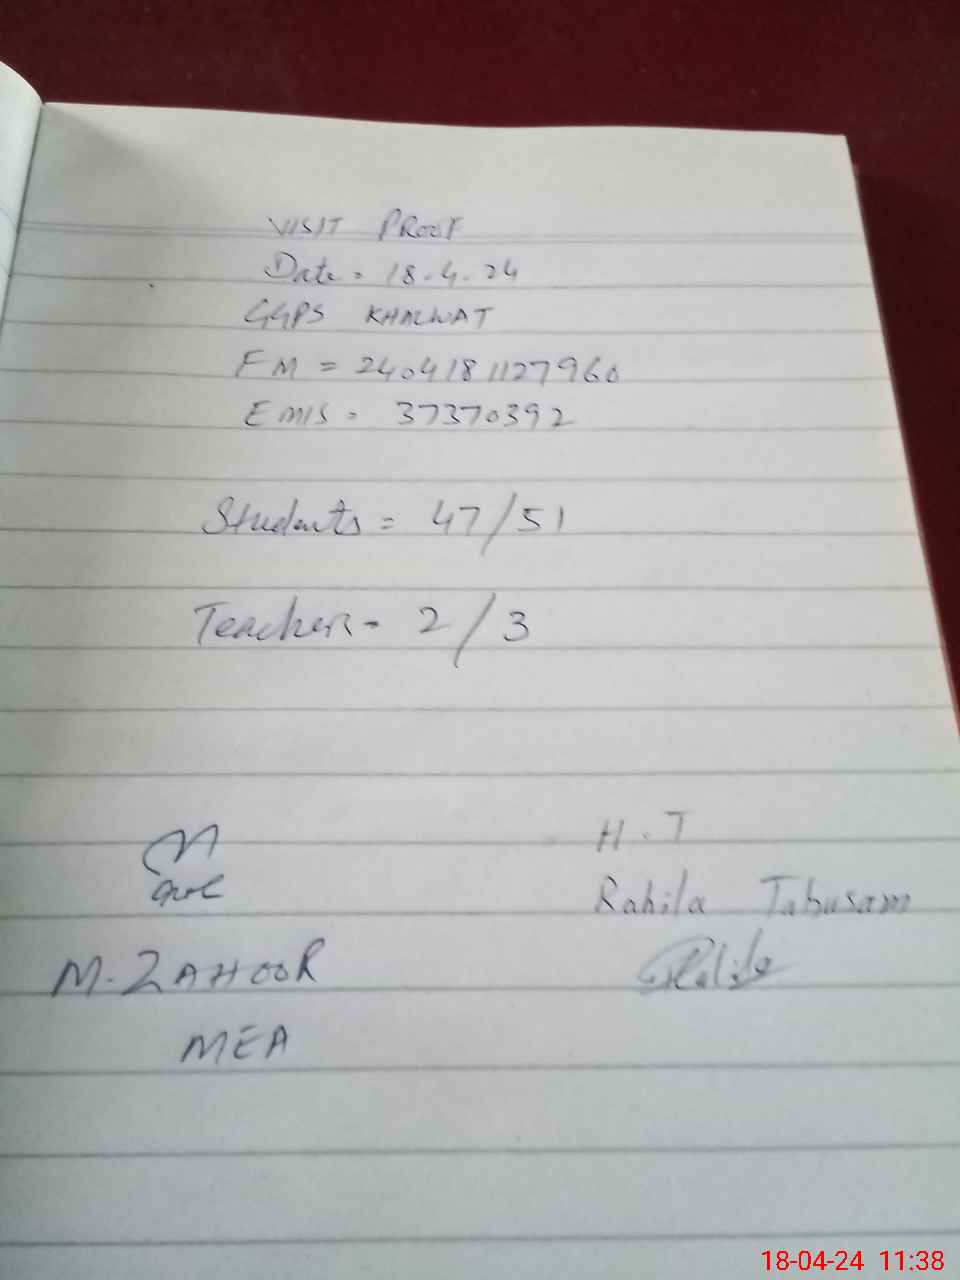 VISIT PROOF
Date = 18.4.24
GGPS KHALWAT
FM = 2404181127960
EMIS = 37370392
Students = 47/51
Teachers = 2/3
H.T
Rahila Tabusam
M. ZAHOOR
MEA
18-04-24 11:38